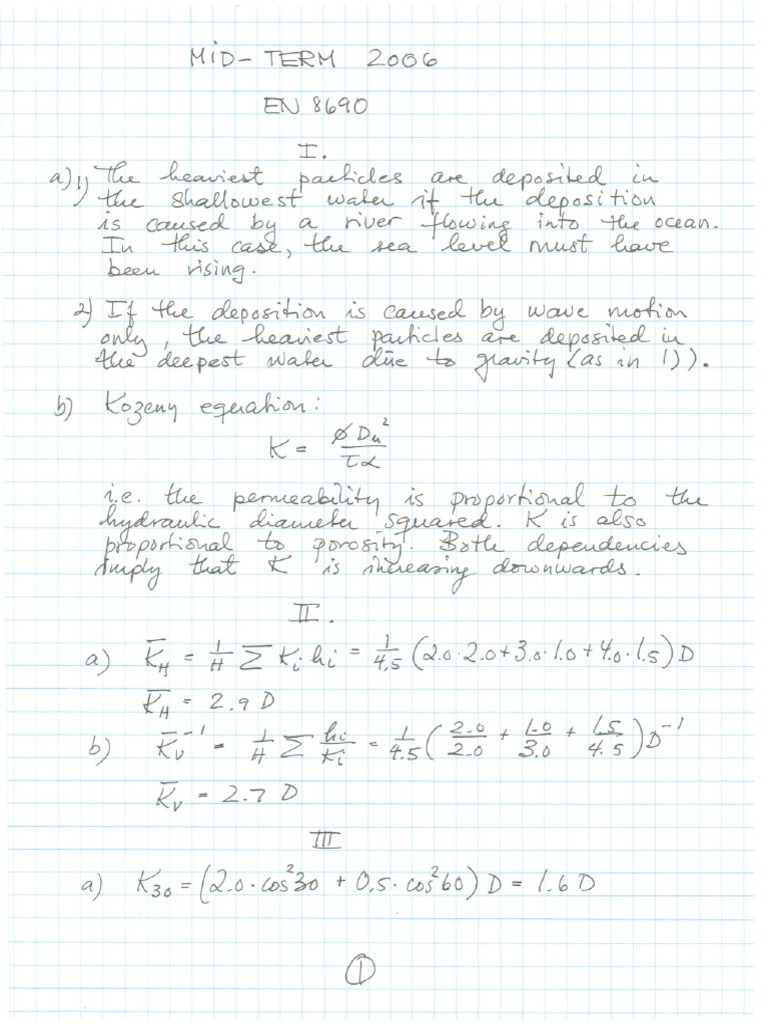 MID-TERM 2006
EN 8690
I.
a) 1) The heaviest particles are deposited in
the shallowest water if the deposition
is caused by a river flowing into the ocean.
In this case, the sea level must have
been rising.
2) If the deposition is caused by wave motion
only, the heaviest particles are deposited in
the deepest water due to gravity (as in 1)).
b) Kozeny equation:
K = ∅ D_H² / τα
i.e. the permeability is proportional to the
hydraulic diameter squared. K is also
proportional to porosity. Both dependencies
imply that K is increasing downwards.
II.
a) K̄_H = 1/H Σ K_i h_i = 1/4.5 (2.0 · 2.0 + 3.0 · 1.0 + 4.0 · 1.5) D
K̄_H = 2.9 D
b) K̄_V⁻¹ = 1/H Σ h_i/K_i = 1/4.5 (2.0/2.0 + 1.0/3.0 + 1.5/4.5) D⁻¹
K̄_V = 2.7 D
III
a) K₃₀ = (2.0 · cos²30 + 0.5 · cos²60) D = 1.6 D
1